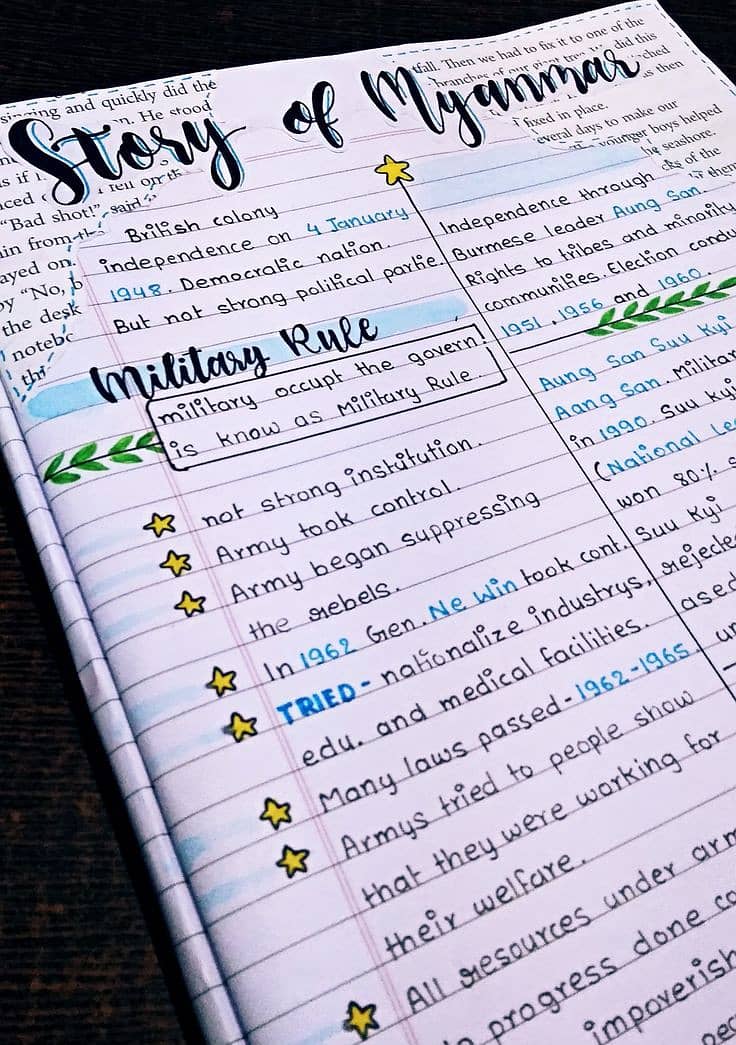 singing and quickly did the
He stood
"Bad shot!" said
fall. Then we had to fix it to one of the
branches of our giant tree. We did this
as then
fixed in place.
several days to make our
younger boys helped
seashore.
of the
Story of Myanmar
British colony
independence on 4 January
1948. Democratic nation.
But not strong political partie.
Military Rule
military occupt the govern.
is know as Military Rule.
not strong instutution.
Army took control.
Army began suppressing
the rebels.
In 1962 Gen. Ne Win took cont.
TRIED - nationalize industrys,
edu. and medical facilities.
Many laws passed - 1962-1965.
Armys tried to people show
that they were working for
their welfare.
All resources under arm
progress done co
impoverish
Independence through
Burmese leader Aung San.
Rights to tribes and minority
communities. Election condu
1951, 1956 and 1960.
Aung San Suu Kyi
Aang San. Militar
in 1990. Suu Kyi
(National Le
won 80%
Suu Kyi
rejecte
ased